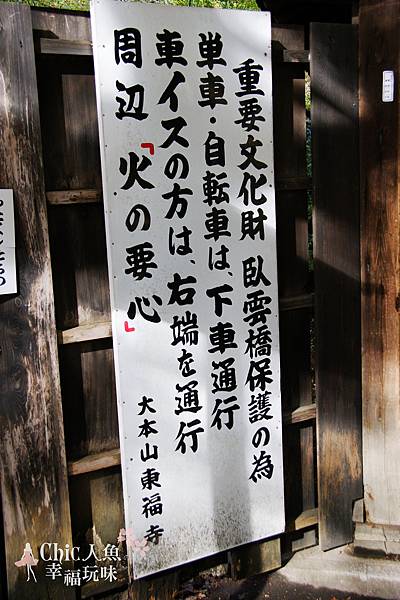 重要文化財 臥雲橋保護の為
単車・自転車は、下車通行
車イスの方は、右端を通行
周辺「火の要心」
大本山東福寺
Chic.人魚
幸福玩味